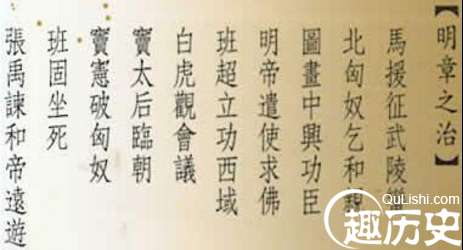 【明章之治】
馬援征武陵蠻
北匈奴乞和親
圖畫中興功臣
明帝遣使求佛
班超立功西域
白虎觀會議
竇太后臨朝
竇憲破匈奴
班固坐死
張禹諫和帝遠遊
QuLishi.com
趣历史